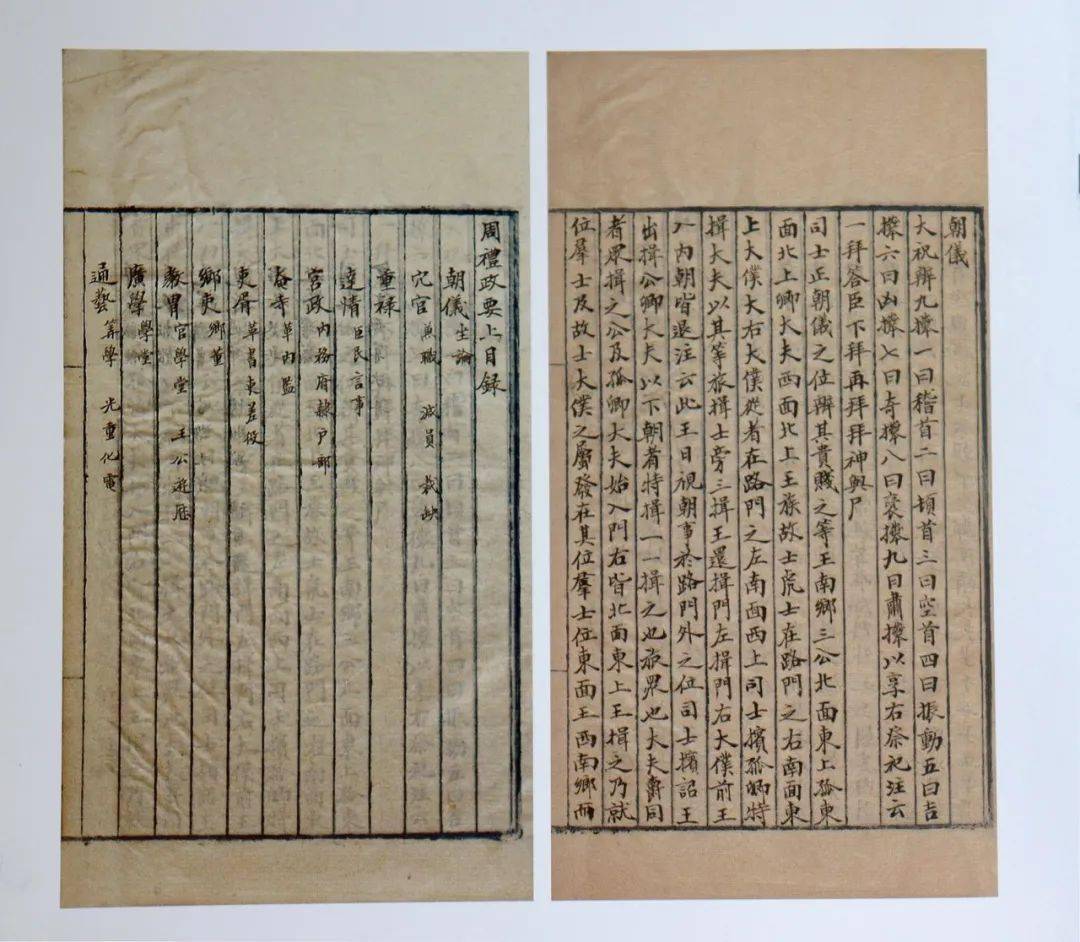 周禮政要上目錄
朝儀 坐論
冗官 兼職 減員 裁缺
重祿
達情 臣民言事
宮政 內務府隸戶部
奄寺 革內監
吏胥 革書吏差役
鄉吏 鄉董
敎胄 官學堂 王公遊歷
廣學 學堂
通藝 算學 光重化電
朝儀
大祝辨九𢷎一曰稽首二曰頓首三曰空首四曰振動五曰吉
𢷎六曰凶𢷎七曰奇𢷎八曰襃𢷎九曰肅𢷎以享右祭祀注云
一拜答臣下拜再拜拜神與尸
司士正朝儀之位辨其貴賤之等王南鄉三公北面東上孤東
面北上卿大夫西面北上王族故士虎士在路門之右南面東
上大僕大右大僕從者在路門之左南面西上司士擯孤卿特
揖大夫以其等旅揖士旁三揖王還揖門左揖門右大僕前王
入內朝皆退注云此王日視朝事於路門外之位司士擯詔王
出揖公卿大夫以下朝者特揖一一揖之也旅眾也大夫爵同
者眾揖之公及孤卿大夫始入門右皆北面東上王揖之乃就
位羣士及故士大僕之屬發在其位羣士位東面王西南鄉而